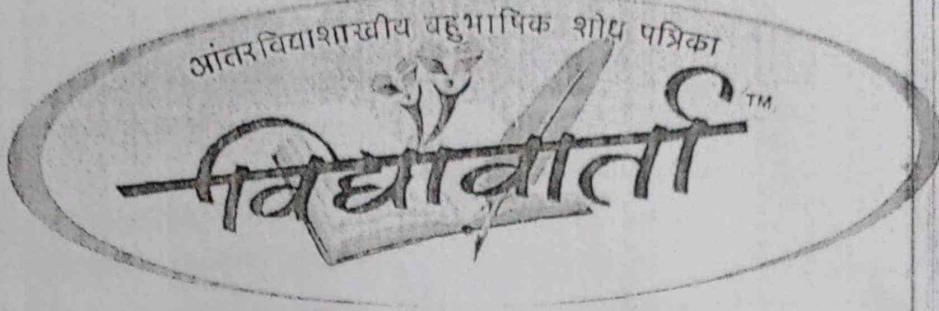 आंतरविद्याशाखीय बहुभाषिक शोध पत्रिका
विद्यावार्ता TM